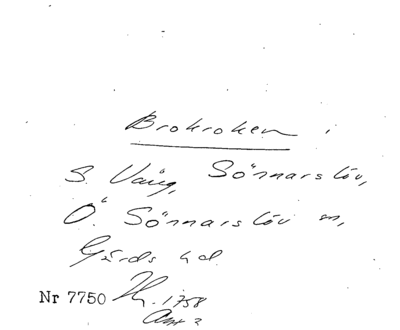 Brokroken i
S. Vång, Sönnarslöv,
Ö. Sönnarslöv sn,
Gärds hd.
Nr 7750 1758